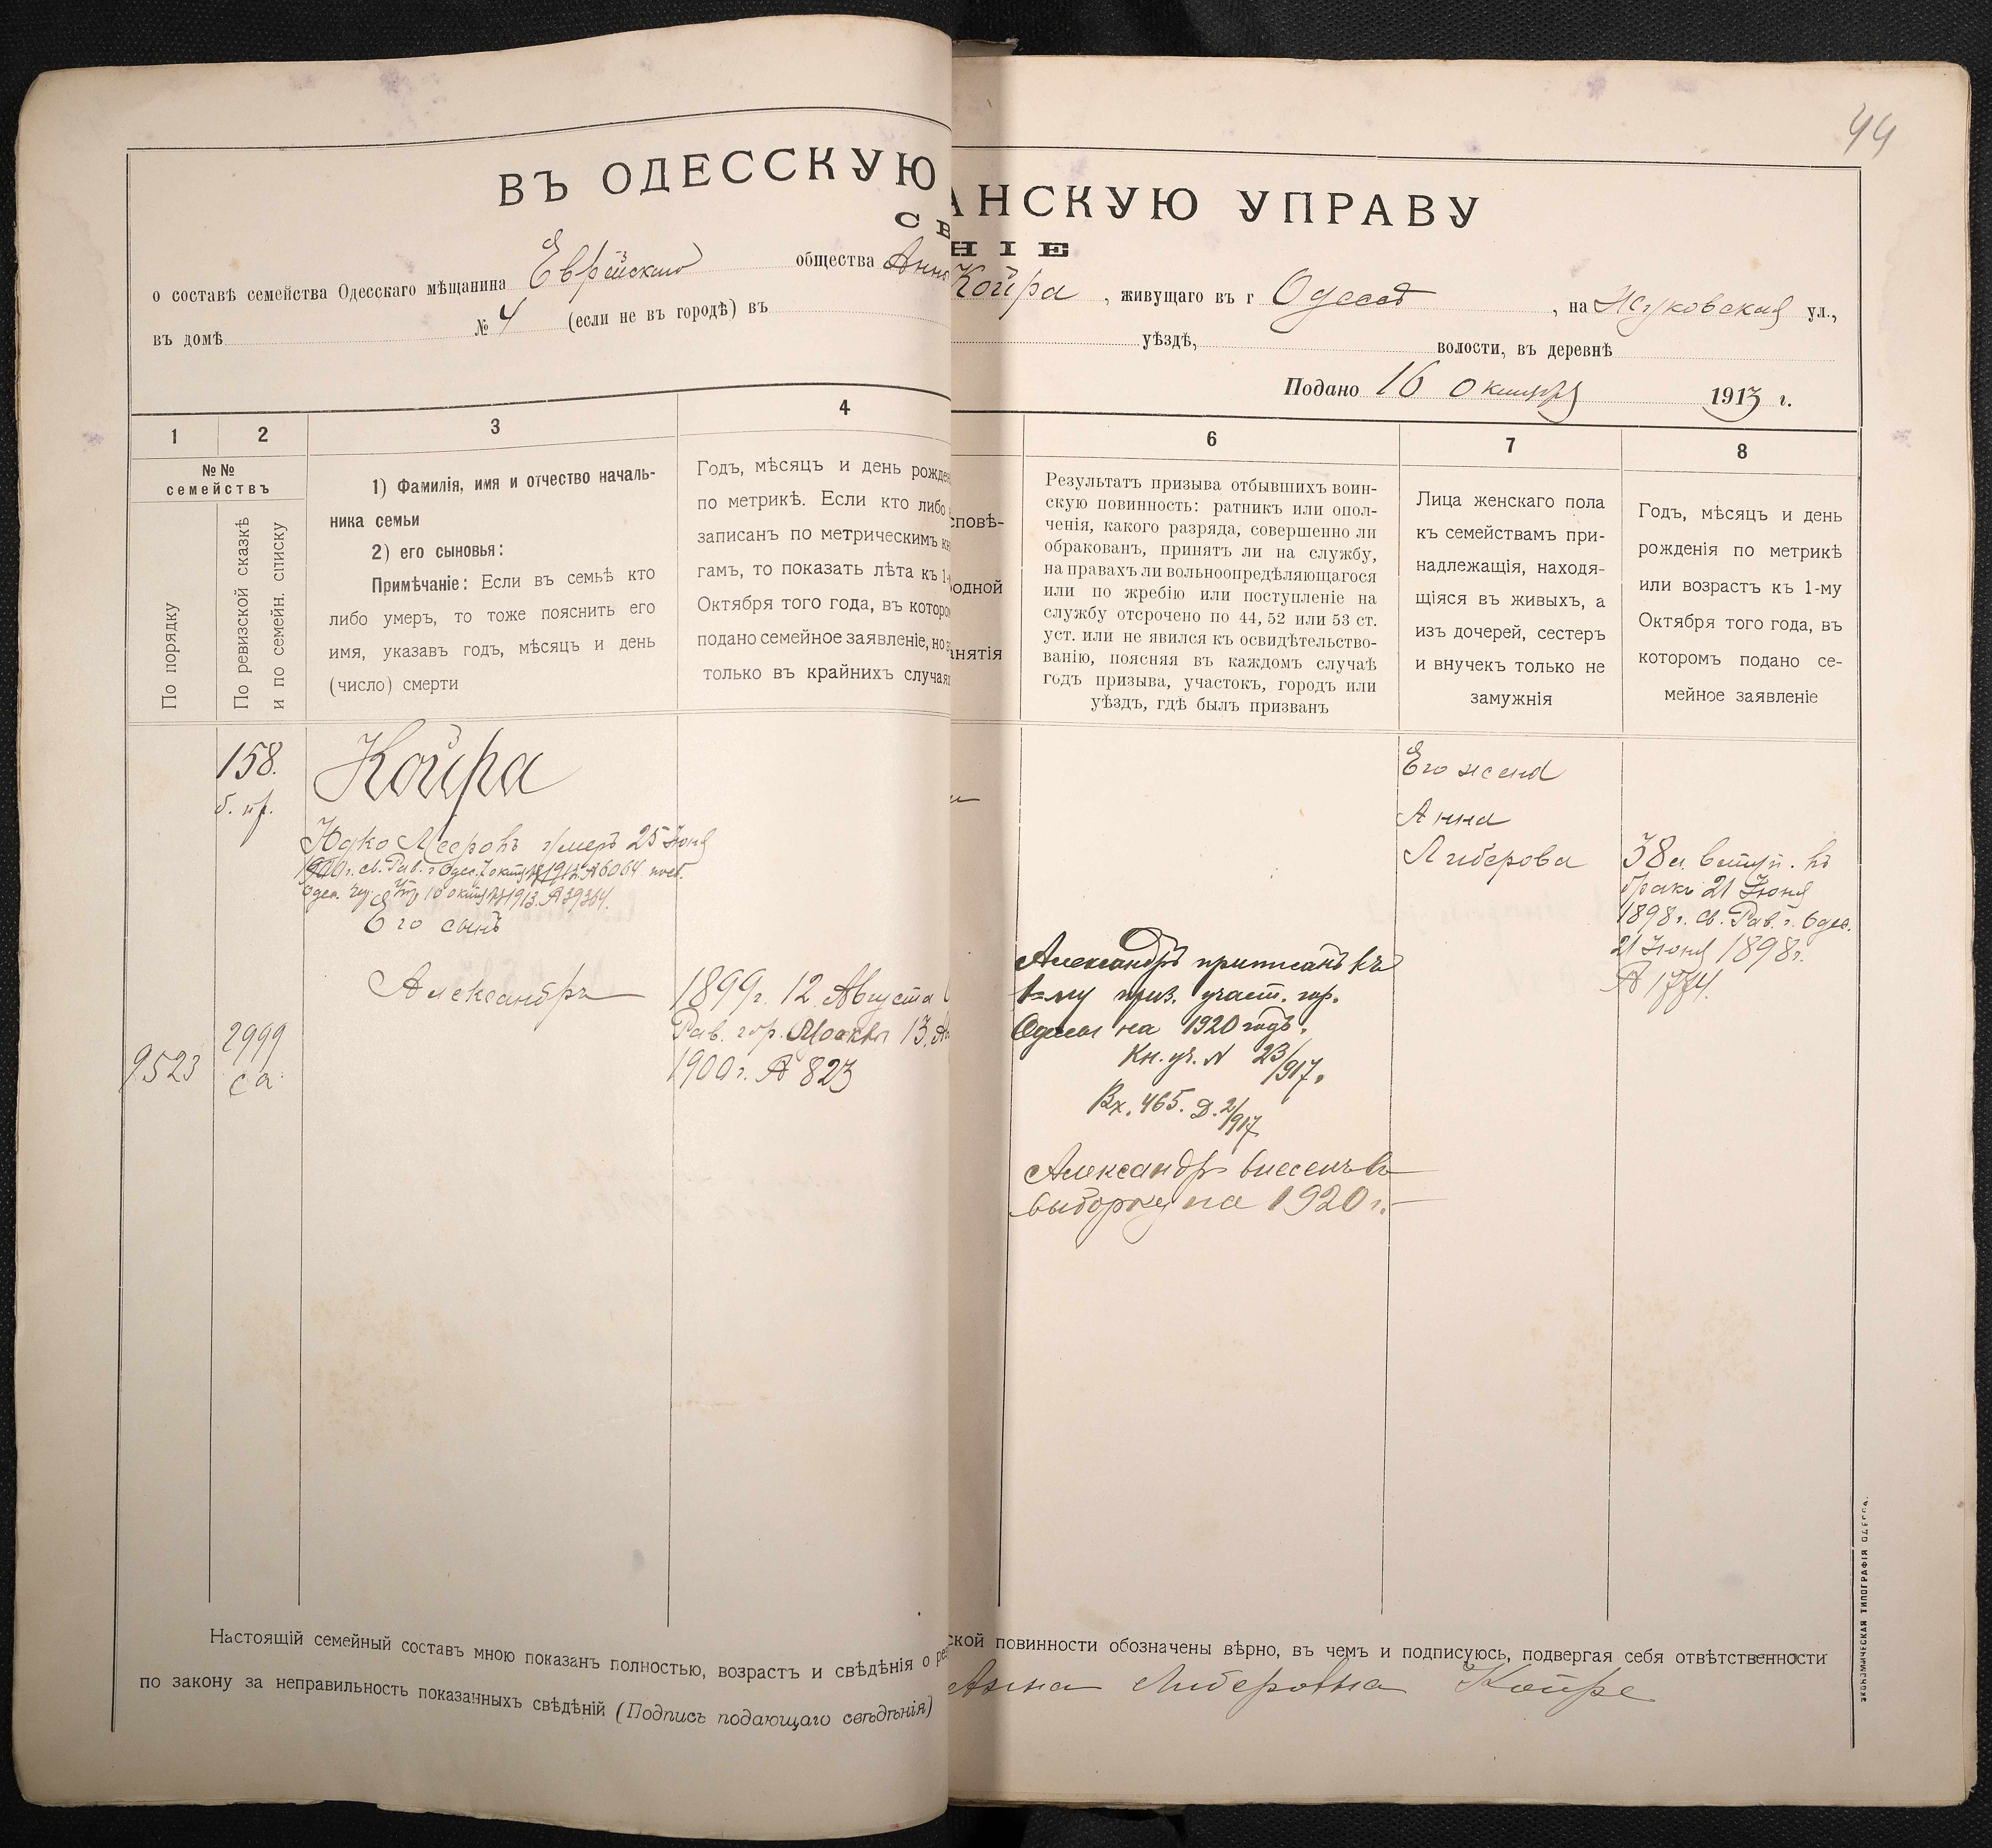 44
ВЪ ОДЕССКУЮ
АНСКУЮ УПРАВУ
СВ
НІЕ
о составѣ семейства Одесскаго мѣщанина Еврейскаго общества Анна
Койра, живущаго въ г Одессѣ, на Жуковской ул.,
въ домѣ № 4 (если не въ городѣ) въ
уѣздѣ, волости, въ деревнѣ
Подано 16 октября 1913 г.
1
2
3
4
6
7
8
№№
семействъ
По порядку
По ревизской сказкѣ
и по семейн. списку
1) Фамилія, имя и отчество началь-
ника семьи
2) его сыновья:
Примѣчаніе: Если въ семьѣ кто
либо умеръ, то тоже пояснить его
имя, указавъ годъ, мѣсяцъ и день
(число) смерти
Годъ, мѣсяцъ и день рожде
по метрикѣ. Если кто либо
записанъ по метрическимъ кн
гамъ, то показать лѣта къ 1-
Октября того года, въ которо
подано семейное заявленіе, но
только въ крайнихъ случая
сповѣ-
одной
анятія
Результатъ призыва отбывшихъ воин-
скую повинность: ратникъ или опол-
ченія, какого разряда, совершенно ли
обракованъ, принятъ ли на службу,
на правахъ ли вольноопредѣляющагося
или по жребію или поступленіе на
службу отсрочено по 44, 52 или 53 ст.
уст. или не явился къ освидѣтельство-
ванію, поясняя въ каждомъ случаѣ
годъ призыва, участокъ, городъ или
уѣздъ, гдѣ былъ призванъ
Лица женскаго пола
къ семействамъ при-
надлежащія, находя-
щіяся въ живыхъ, а
изъ дочерей, сестеръ
и внучекъ только не
замужнія
Годъ, мѣсяцъ и день
рожденія по метрикѣ
или возрастъ къ 1-му
Октября того года, въ
которомъ подано се-
мейное заявленіе
158.
б. пр.
Койра
Юдко Мееровъ умеръ 25 Іюня
1900 г. св. Рав. г. Одес. 7 октяб 1912 № 6064 
Одес. 10 октяб 1913. № 39364.
Его сынъ
Александръ
9523
2999
са
1899 г. 12 Августа
Рав. гор. Москвы 13. Ав
1900 г. № 823
Александръ приписанъ къ
1-му приз. участ. гор.
Одессы на 1920 годъ.
Кн. уч. N 23/917.
Вх. 465. Д. 2/917
Александръ внесенъ въ
выборку на 1920 г.
Его жена
Анна
Либерова
38 л. вступ. въ
бракъ 21 Іюня
1898 г. св. Рав. г. Одес.
21 Іюня 1898 г.
№ 1774.
Настоящій семейный составъ мною показанъ полностью, возрастъ и свѣдѣнія о
ской повинности обозначены вѣрно, въ чемъ и подписуюсь, подвергая себя отвѣтственности
по закону за неправильность показанныхъ свѣдѣній (Подпись подающаго свѣдѣнія)
Анна Либеровна Койре
ЭКОНОМИЧЕСКАЯ ТИПОГРАФІЯ ОДЕССА.